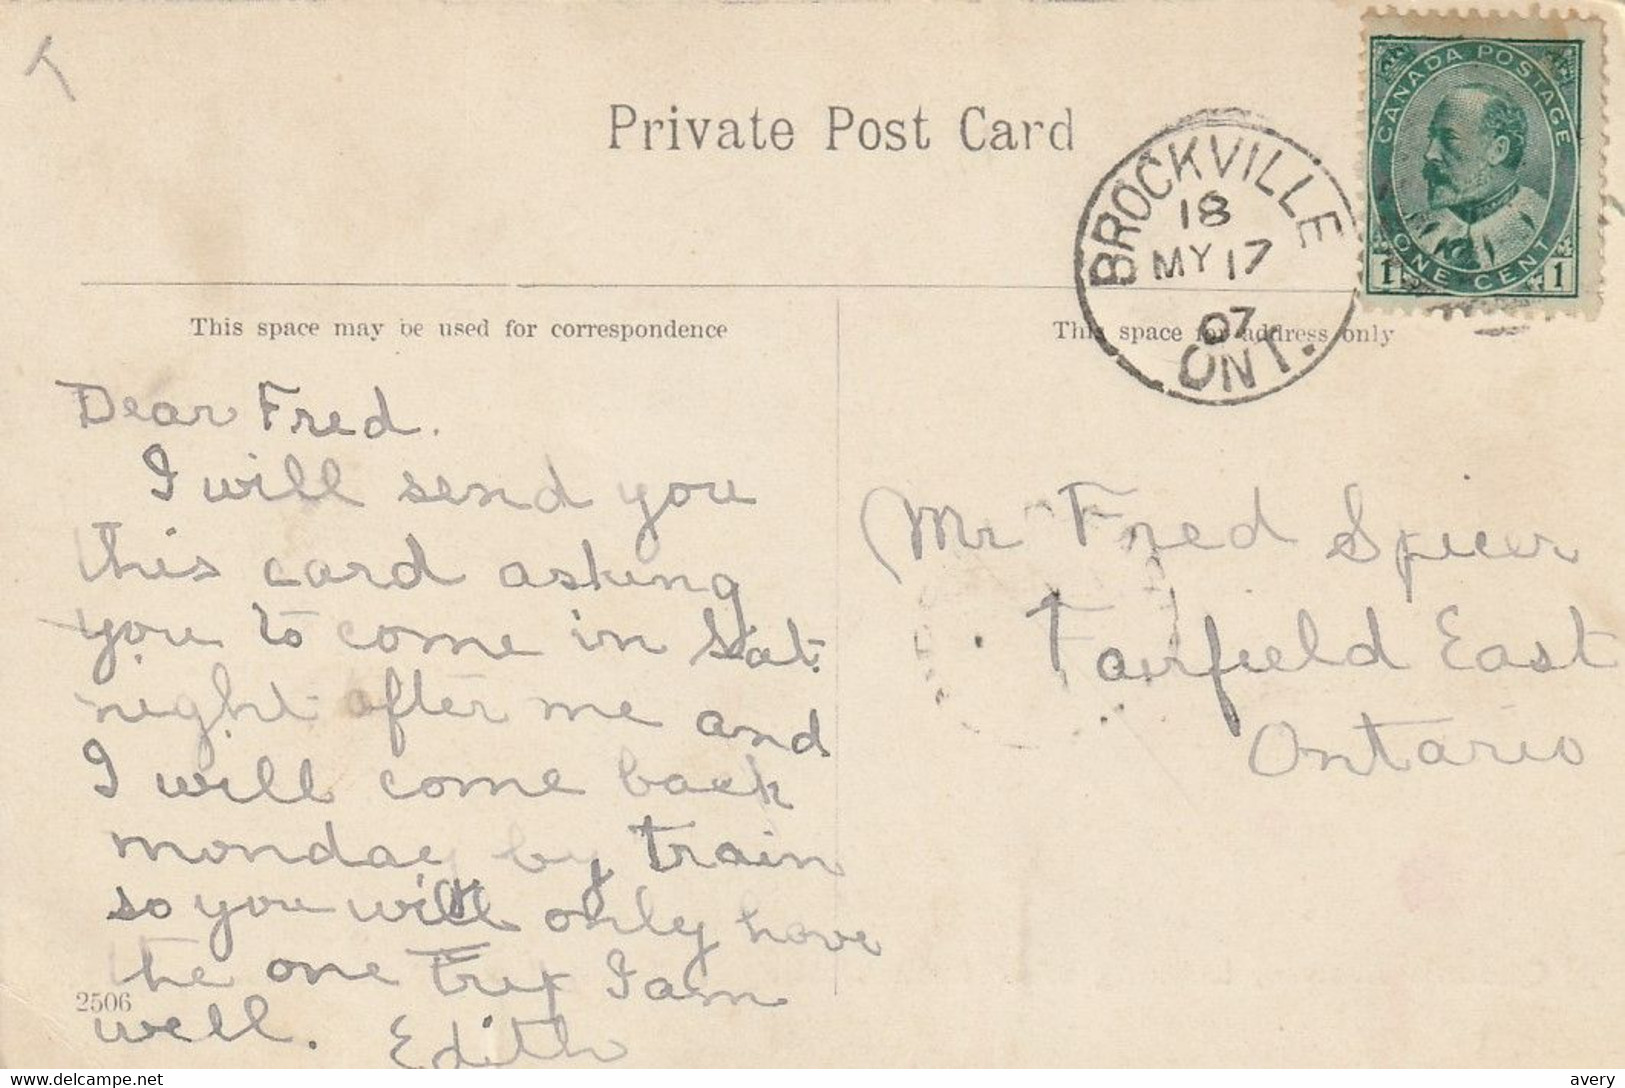 Private Post Card
CANADA POSTAGE
ONE CENT
1 1
BROCKVILLE
18
MY 17
07
ONT.
This space may be used for correspondence
This space for address only
Dear Fred.
I will send you
this card asking
you to come in Sat.
night after me and
I will come back
monday by train
so you will only have
the one Trip I am
well. Edith
2506
Mr Fred Spicer
Fairfield East
Ontario
www.delcampe.net
avery